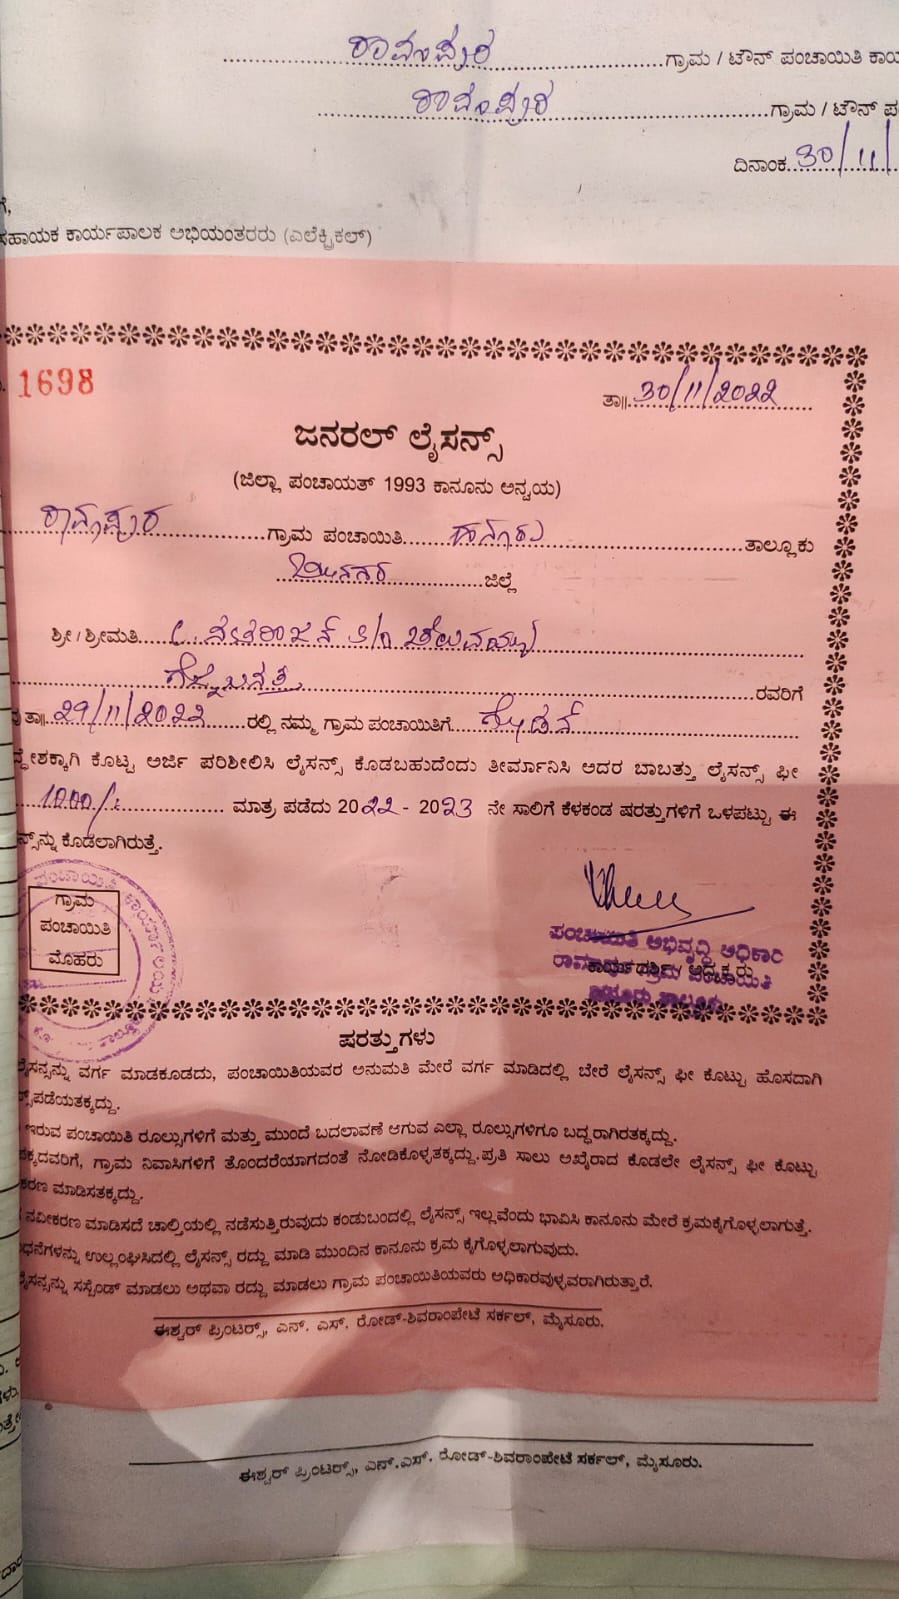 ರಾಮಪುರ ಗ್ರಾಮ / ಟೌನ್ ಪಂಚಾಯಿತಿ ಕಾರ್ಯ
ರಾಮಪುರ ಗ್ರಾಮ / ಟೌನ್ ಪ
ದಿನಾಂಕ 30/11/
ಗೆ,
ಸಹಾಯಕ ಕಾರ್ಯಪಾಲಕ ಅಭಿಯಂತರರು (ಎಲೆಕ್ಟ್ರಿಕಲ್)
1698
ತಾ॥ 30/11/2022
ಜನರಲ್ ಲೈಸನ್ಸ್
(ಜಿಲ್ಲಾ ಪಂಚಾಯತ್ 1993 ಕಾನೂನು ಅನ್ವಯ)
ರಾಮಪುರ ಗ್ರಾಮ ಪಂಚಾಯಿತಿ ಹನೂರು ತಾಲ್ಲೂಕು
ಜಿಲ್ಲೆ
ಶ್ರೀ / ಶ್ರೀಮತಿ
ರವರಿಗೆ
ತಾ॥ 29/11/2022 ರಲ್ಲಿ ನಮ್ಮ ಗ್ರಾಮ ಪಂಚಾಯಿತಿಗೆ
ದ್ದೇಶಕ್ಕಾಗಿ ಕೊಟ್ಟ ಅರ್ಜಿ ಪರಿಶೀಲಿಸಿ ಲೈಸನ್ಸ್ ಕೊಡಬಹುದೆಂದು ತೀರ್ಮಾನಿಸಿ ಅದರ ಬಾಬತ್ತು ಲೈಸನ್ಸ್ ಫೀ
1000/- ಮಾತ್ರ ಪಡೆದು 2022 - 2023 ನೇ ಸಾಲಿಗೆ ಕೆಳಕಂಡ ಷರತ್ತುಗಳಿಗೆ ಒಳಪಟ್ಟು ಈ
ನ್ಸ್‌ನ್ನು ಕೊಡಲಾಗಿರುತ್ತೆ.
ಗ್ರಾಮ
ಪಂಚಾಯಿತಿ
ಮೊಹರು
ಪಂಚಾಯಿತಿ ಅಭಿವೃದ್ಧಿ ಅಧಿಕಾರಿ
ಕಾರ್ಯದರ್ಶಿ / ಅಧ್ಯಕ್ಷರು
ಷರತ್ತುಗಳು
ಲೈಸನ್ಸನ್ನು ವರ್ಗ ಮಾಡಕೂಡದು, ಪಂಚಾಯಿತಿಯವರ ಅನುಮತಿ ಮೇರೆ ವರ್ಗ ಮಾಡಿದಲ್ಲಿ ಬೇರೆ ಲೈಸನ್ಸ್ ಫೀ ಕೊಟ್ಟು ಹೊಸದಾಗಿ
ನ್ಸ್‌ಪಡೆಯತಕ್ಕದ್ದು.
ಇರುವ ಪಂಚಾಯಿತಿ ರೂಲ್ಸುಗಳಿಗೆ ಮತ್ತು ಮುಂದೆ ಬದಲಾವಣೆ ಆಗುವ ಎಲ್ಲಾ ರೂಲ್ಸುಗಳಿಗೂ ಬದ್ಧರಾಗಿರತಕ್ಕದ್ದು.
ಪಕ್ಕದವರಿಗೆ, ಗ್ರಾಮ ನಿವಾಸಿಗಳಿಗೆ ತೊಂದರೆಯಾಗದಂತೆ ನೋಡಿಕೊಳ್ಳತಕ್ಕದ್ದು.ಪ್ರತಿ ಸಾಲು ಅಖೈರಾದ ಕೂಡಲೇ ಲೈಸನ್ಸ್ ಫೀ ಕೊಟ್ಟು
ಕರಣ ಮಾಡಿಸತಕ್ಕದ್ದು.
ನವೀಕರಣ ಮಾಡಿಸದೆ ಚಾಲ್ತಿಯಲ್ಲಿ ನಡೆಸುತ್ತಿರುವುದು ಕಂಡುಬಂದಲ್ಲಿ ಲೈಸನ್ಸ್ ಇಲ್ಲವೆಂದು ಭಾವಿಸಿ ಕಾನೂನು ಮೇರೆ ಕ್ರಮಕೈಗೊಳ್ಳಲಾಗುತ್ತೆ.
ಧನೆಗಳನ್ನು ಉಲ್ಲಂಘಿಸಿದಲ್ಲಿ ಲೈಸನ್ಸ್ ರದ್ದು ಮಾಡಿ ಮುಂದಿನ ಕಾನೂನು ಕ್ರಮ ಕೈಗೊಳ್ಳಲಾಗುವುದು.
ಲೈಸನ್ಸನ್ನು ಸಸ್ಪೆಂಡ್ ಮಾಡಲು ಅಥವಾ ರದ್ದು ಮಾಡಲು ಗ್ರಾಮ ಪಂಚಾಯಿತಿಯವರು ಅಧಿಕಾರವುಳ್ಳವರಾಗಿರುತ್ತಾರೆ.
ಈಶ್ವರ್ ಪ್ರಿಂಟರ್ಸ್, ಎನ್. ಎಸ್. ರೋಡ್-ಶಿವರಾಂಪೇಟೆ ಸರ್ಕಲ್, ಮೈಸೂರು.
ಈಶ್ವರ್ ಪ್ರಿಂಟರ್ಸ್, ಎನ್.ಎಸ್. ರೋಡ್-ಶಿವರಾಂಪೇಟೆ ಸರ್ಕಲ್, ಮೈಸೂರು.